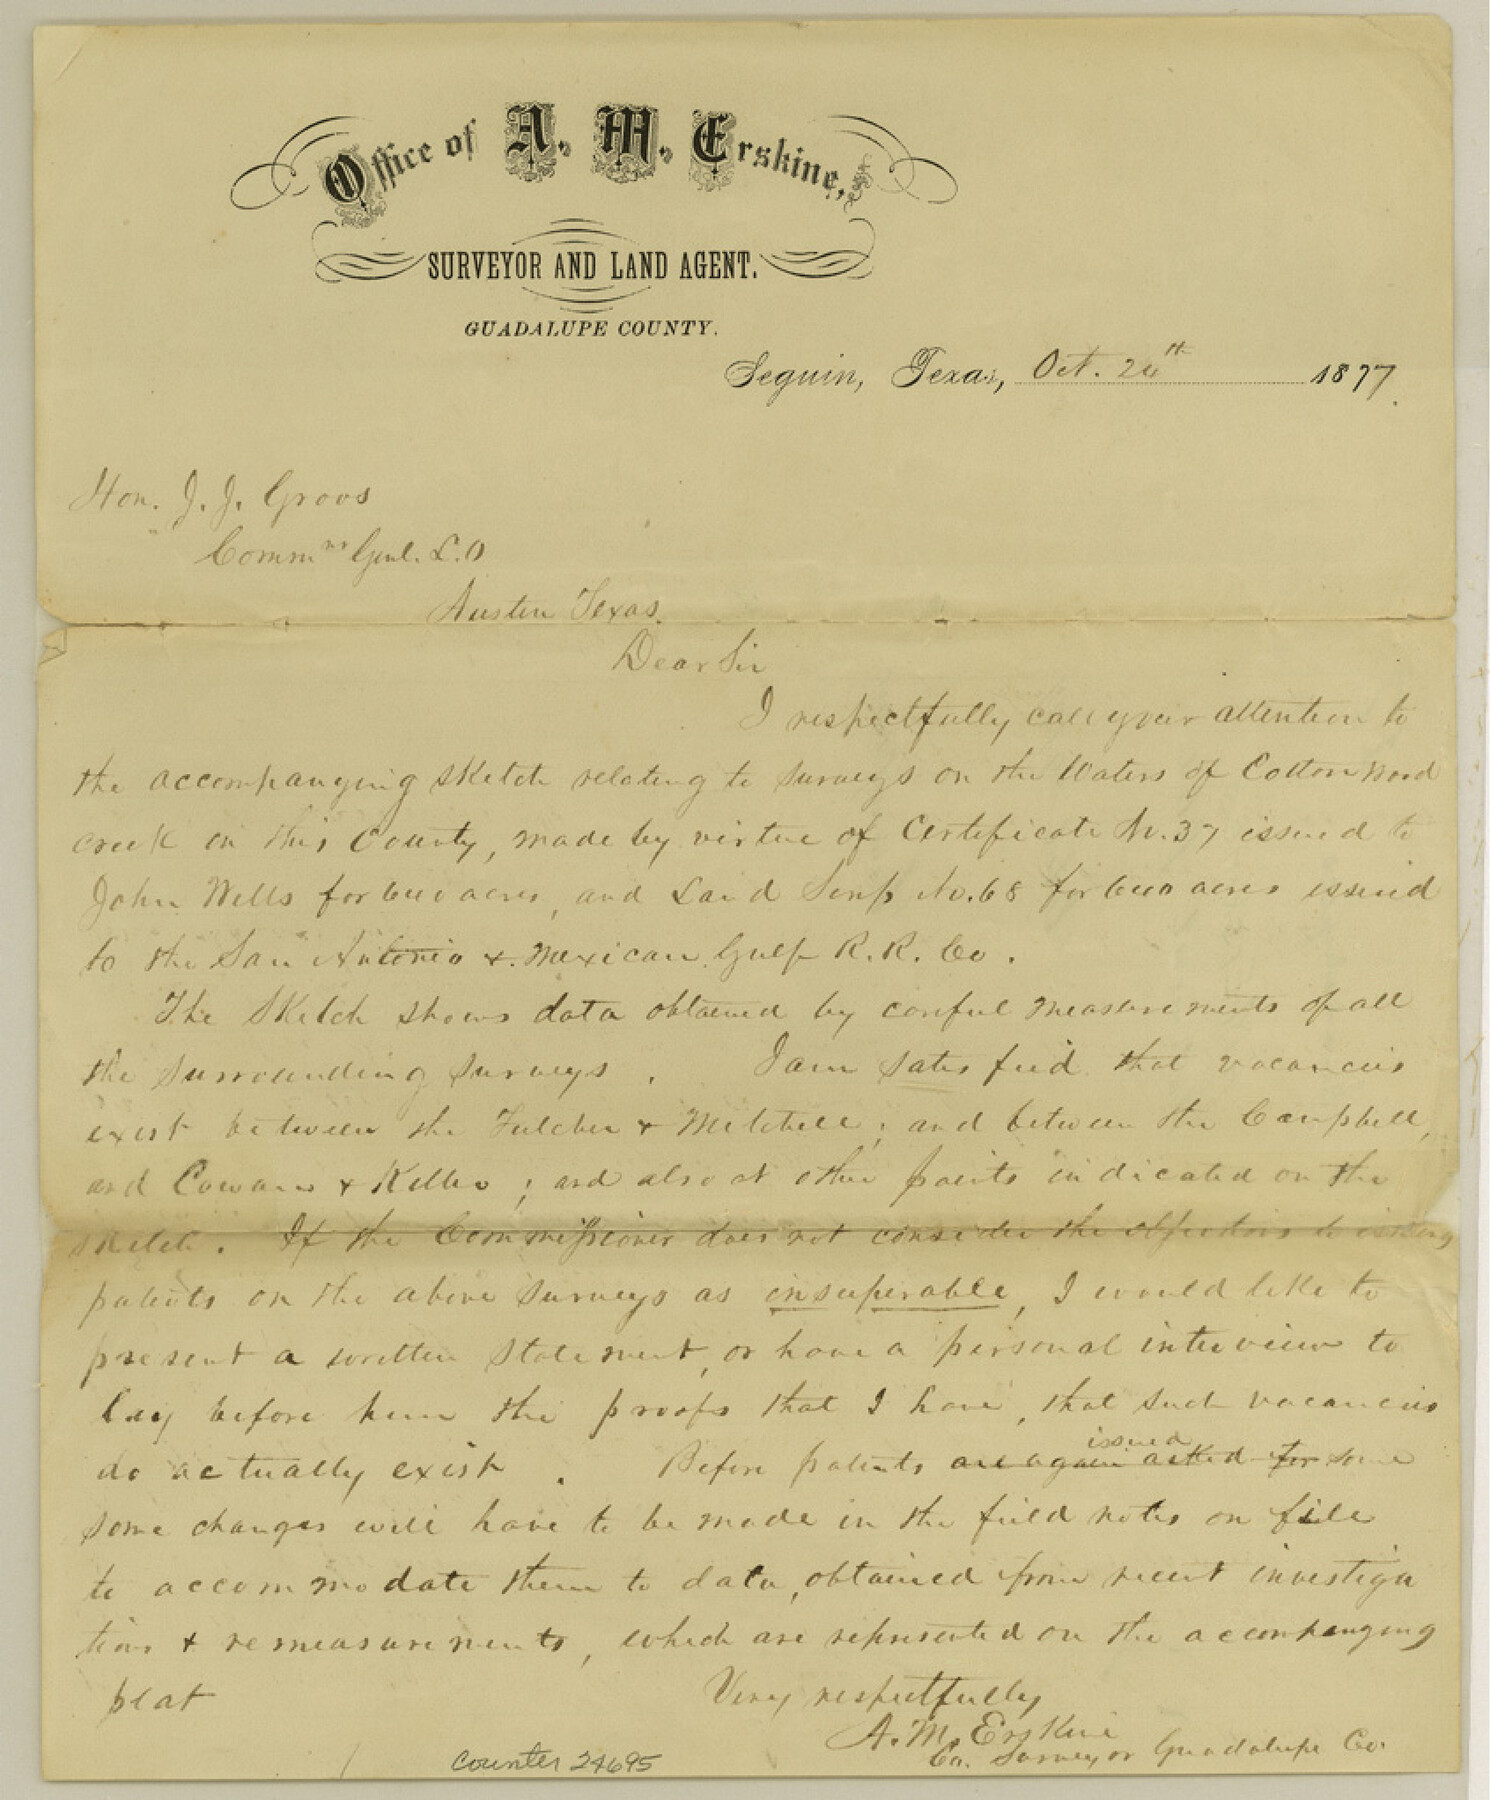 Office of A. M. Erskine,
SURVEYOR AND LAND AGENT.
GUADALUPE COUNTY.
Seguin, Texas, Oct. 24th 1877.
Hon. J. J. Groos
Commnr Genl. L.O
Austin Texas.
Dear Sir
I respectfully call your attention to
the accompanying sketch relating to surveys on the Waters of Cottonwood
creek in this County, made by virtue of Certificate No. 37 issued to
John Wells for 640 acres, and Land Scrip No. 68 for 640 acres issued
to the San Antonio & Mexican Gulf R. R. Co.
The Sketch shows data obtained by careful measurements of all
the surrounding surveys. I am satisfied that vacancies
exist between the Fulcher & Mitchell; and between the Campbell,
and Cowans & Keller; and also at other points indicated on the
sketch. If the Commissioner does not consider the objections to issuing
patents on the above surveys as insuperable, I would like to
present a written statement, or have a personal interview to
lay before him the proofs that I have, that such vacancies
do actually exist. Before patents are again asked for issued some
some changes will have to be made in the field notes on file
to accommodate them to data, obtained from recent investiga
tions & remeasurements, which are represented on the accompanying
plat
Very respectfully
A. M. Erskine
Co. Surveyor Guadalupe Co.
counter 24695